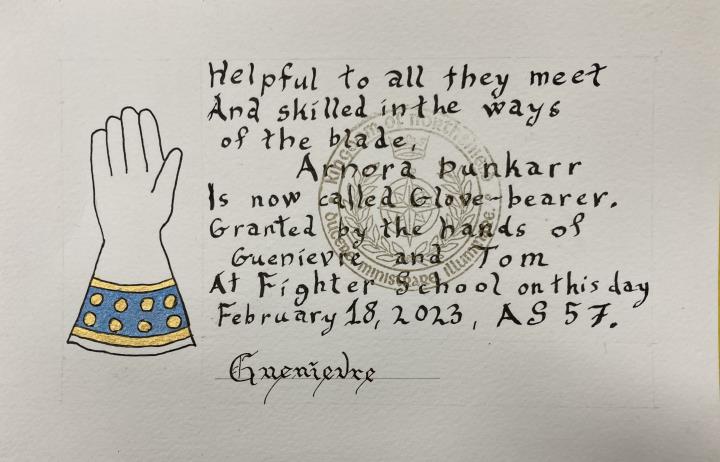 Helpful to all they meet
And skilled in the ways
of the blade,
Arnora Dunkarr
Is now called Glove-bearer.
Granted by the hands of
Guenievre and Tom
At Fighter School on this day
February 18, 2023, AS 57.
Guenievre
Kingdom of Northshield